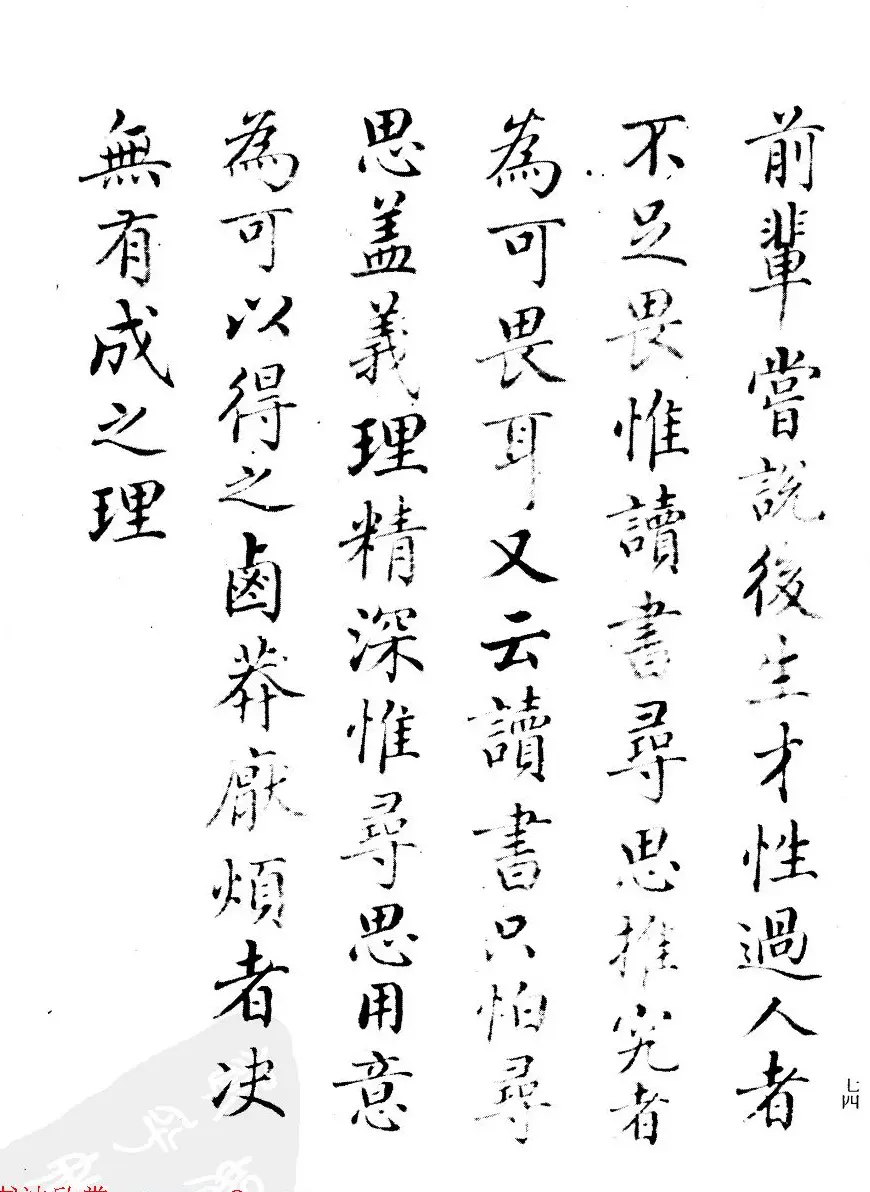 前輩嘗說後生才性過人者
不足畏惟讀書尋思推究者
為可畏耳又云讀書只怕尋
思盖義理精深惟尋思用意
為可以得之鹵莽厭煩者决
無有成之理
七四